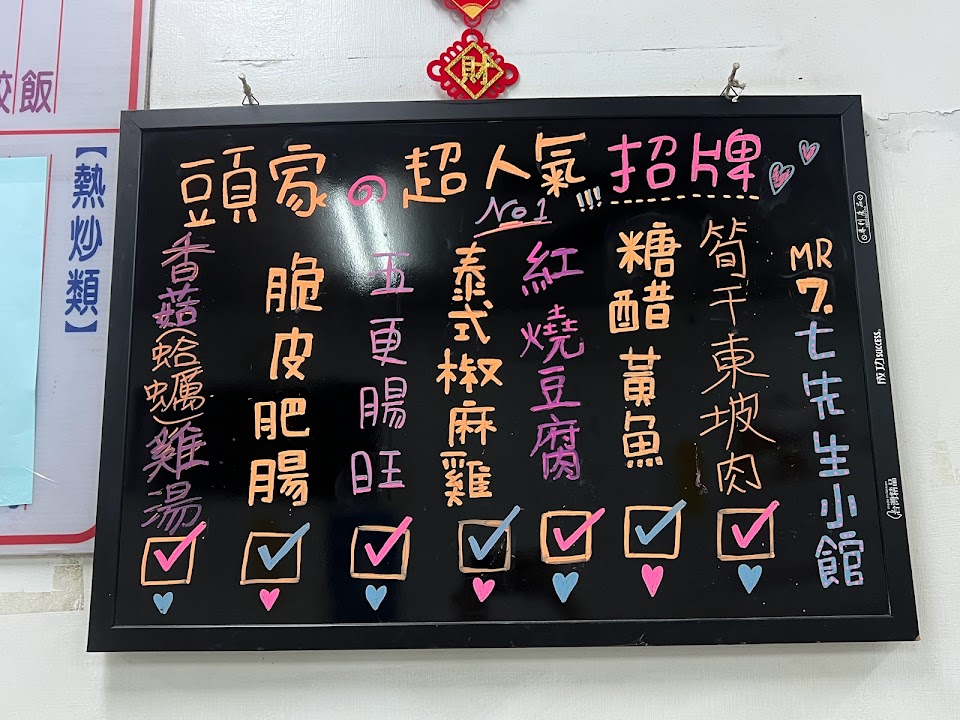 財
餃飯
【熱炒類】
頭家の超人氣招牌
No1 !!!
MR 7. 七先生小館
筍干東坡肉
糖醋黃魚
紅燒豆腐
泰式椒麻雞
五更腸旺
脆皮肥腸
香菇(蛤蠣)雞湯
成功 SUCCESS.
台灣精品